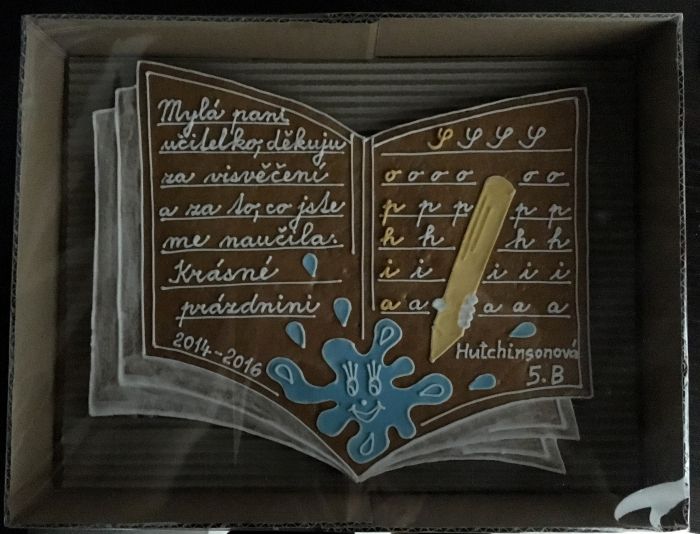 Mylá pani
učitelko, děkuju
za visvěčení
a za to, co jste
me naučila.
Krásné
prázdnini
2014-2016
S S S S
o o o o o o
p p p p p
h h h h
i i i i i
a a a a a
Hutchinsonová
5. B